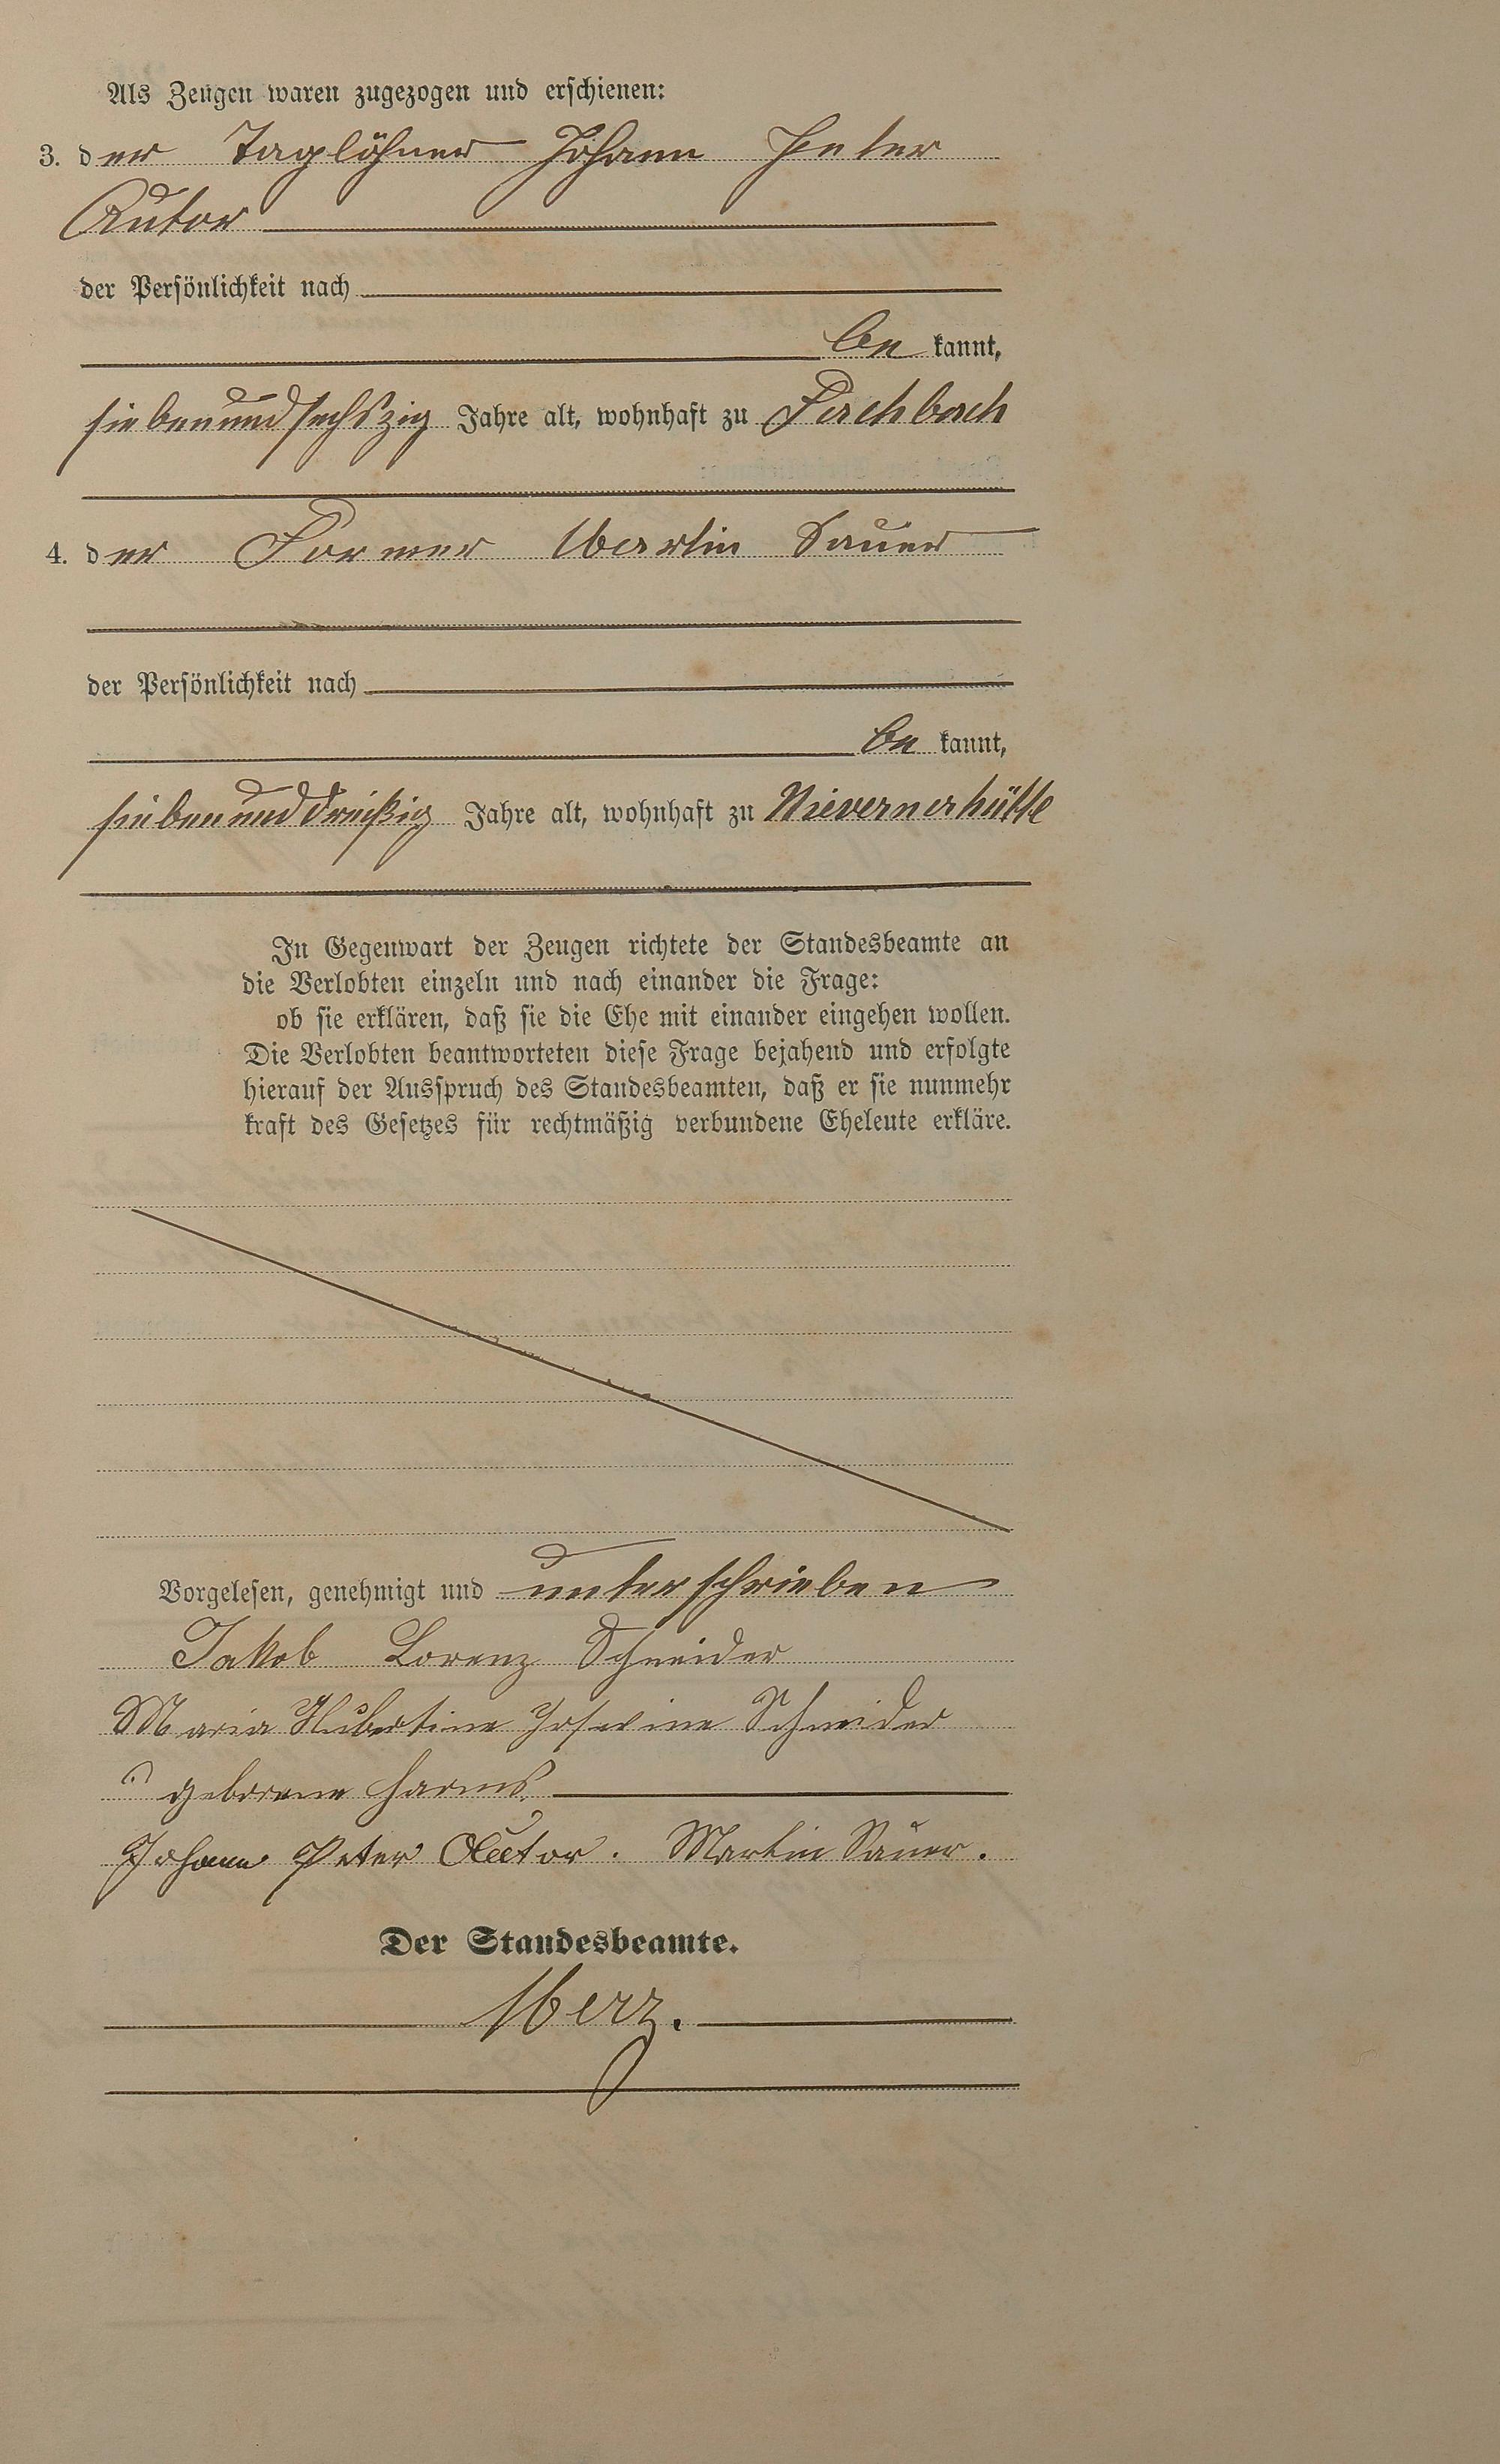 Als Zeugen waren zugezogen und erschienen:
3. der Taglöhner Johann Peter
Autor
der Persönlichkeit nach
be kannt,
siebenundsechszig Jahre alt, wohnhaft zu Fachbach
4. der Former Martin Sauer
der Persönlichkeit nach
be kannt,
siebenunddreißig Jahre alt, wohnhaft zu Nievernerhütte
In Gegenwart der Zeugen richtete der Standesbeamte an
die Verlobten einzeln und nach einander die Frage:
ob sie erklären, daß sie die Ehe mit einander eingehen wollen.
Die Verlobten beantworteten diese Frage bejahend und erfolgte
hierauf der Ausspruch des Standesbeamten, daß er sie nunmehr
kraft des Gesetzes für rechtmäßig verbundene Eheleute erkläre.
Vorgelesen, genehmigt und unterschrieben
Jakob Lorenz Schneider
Maria Hubertine Josefine Schneider
geborene Harms.
Johann Peter Autor. Martin Sauer.
Der Standesbeamte.
Merz.